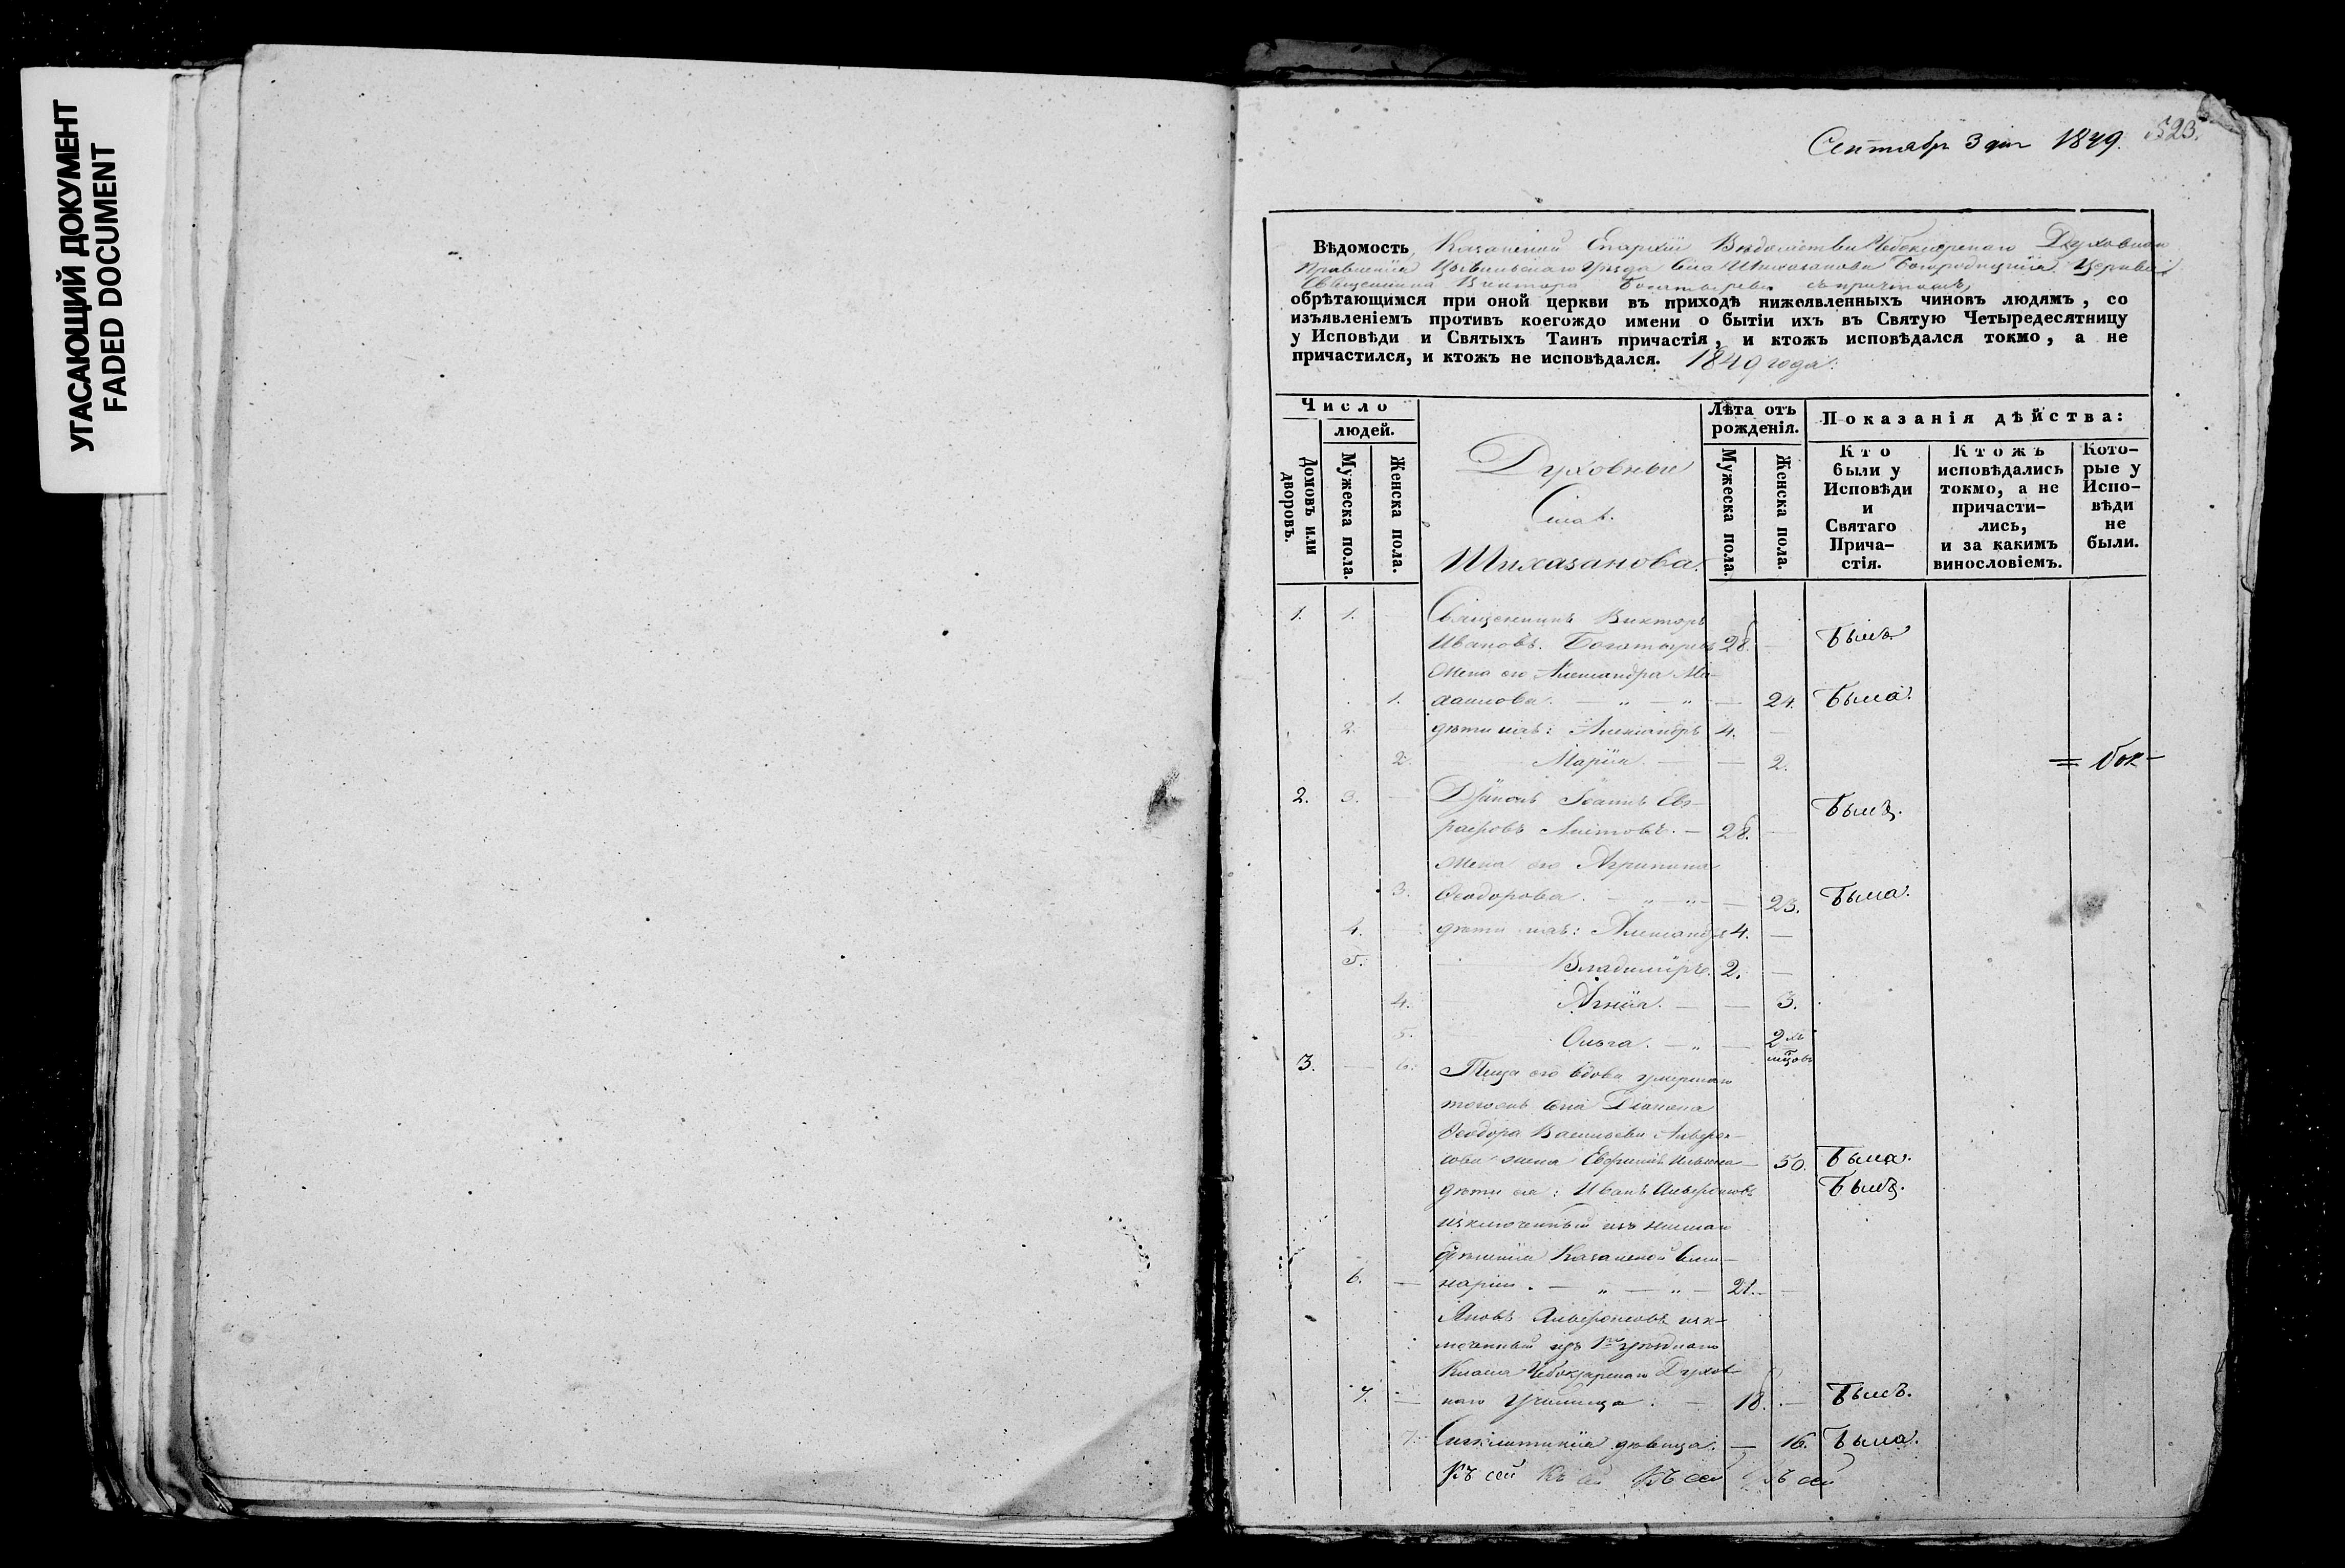 УГАСАЮЩИЙ ДОКУМЕНТ
FADED DOCUMENT
Сентябр 3 дня 1849.
523.
Вѣдомость Казанской Епархіи Вѣдомства Чебоксарскаго Духовнаго
Правленія Цывильскаго уѣзда села Шихазанова Богородицкія Церкви
Священника Виктора Богатырева съ причтомъ,
обрѣтающимся при оной церкви въ приходѣ нижеявленныхъ чиновъ людямъ, со
изъявленіемъ противъ коегождо имени о бытіи ихъ въ Святую Четыредесятницу
у Исповѣди и Святыхъ Таинъ причастія, и ктожъ исповѣдался токмо, а не
причастился, и ктожъ не исповѣдался. 1849 года.
Число
людей.
Домовъ или дворовъ.
Мужеска пола.
Женска пола.
Духовные
Села
Шихазанова.
Лѣта отъ рожденія.
Мужеска пола.
Женска пола.
Показанія дѣйства:
Кто были у Исповѣди и Святаго Прича-стія.
Ктожъ исповѣдались токмо, а не причасти-лись, и за какимъ винословіемъ.
Кото-рые у Испо-вѣди не были.
1. 1. Священникъ Викторъ
Ивановъ Богатыревъ 28. Былъ
Жена его Александра Ми-
1. хаилова. 24. Была.
2. дѣти ихъ: Александръ 4.
2. Марія. 2.
2. 3. Діаконъ Іоаннъ Ев-
графовъ 28. Былъ.
жена его Агрипина
3. Феодорова. 23. Была.
4. дѣти ихъ: Александръ 4.
5. Владиміръ. 2.
4. Агнія. 3.
5. Ольга. 2хъ
мѣсяцовъ
3. 6. Теща его вдова умершаго
того же села Діакона
Феодора Васильева
жена 50. Была.
дѣти ея: Иванъ Былъ.
изключенный изъ низшаго
отдѣленія Казанской Семи-
6. наріи. 21.
Яковъ изк-
люченный изъ уѣзднаго
Класса Чебоксарскаго Духов-
7. наго Училища. 18. Былъ.
7. Синклитикія дѣвица. 16. Была.
Къ сей Къ сей Къ сей Къ сей